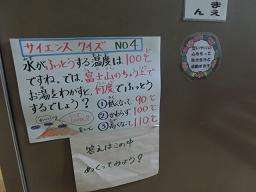 まえ
ん
サイエンス クイズ NO4
水がふっとうする温度は100℃
ですね。では、富士山のちょう上で
お湯をわかすと、何度でふっとう
するでしょう?
①低くなって 90℃
②かわらず 100℃
③高くなって 110℃
答えはこの中
めくってみよう?